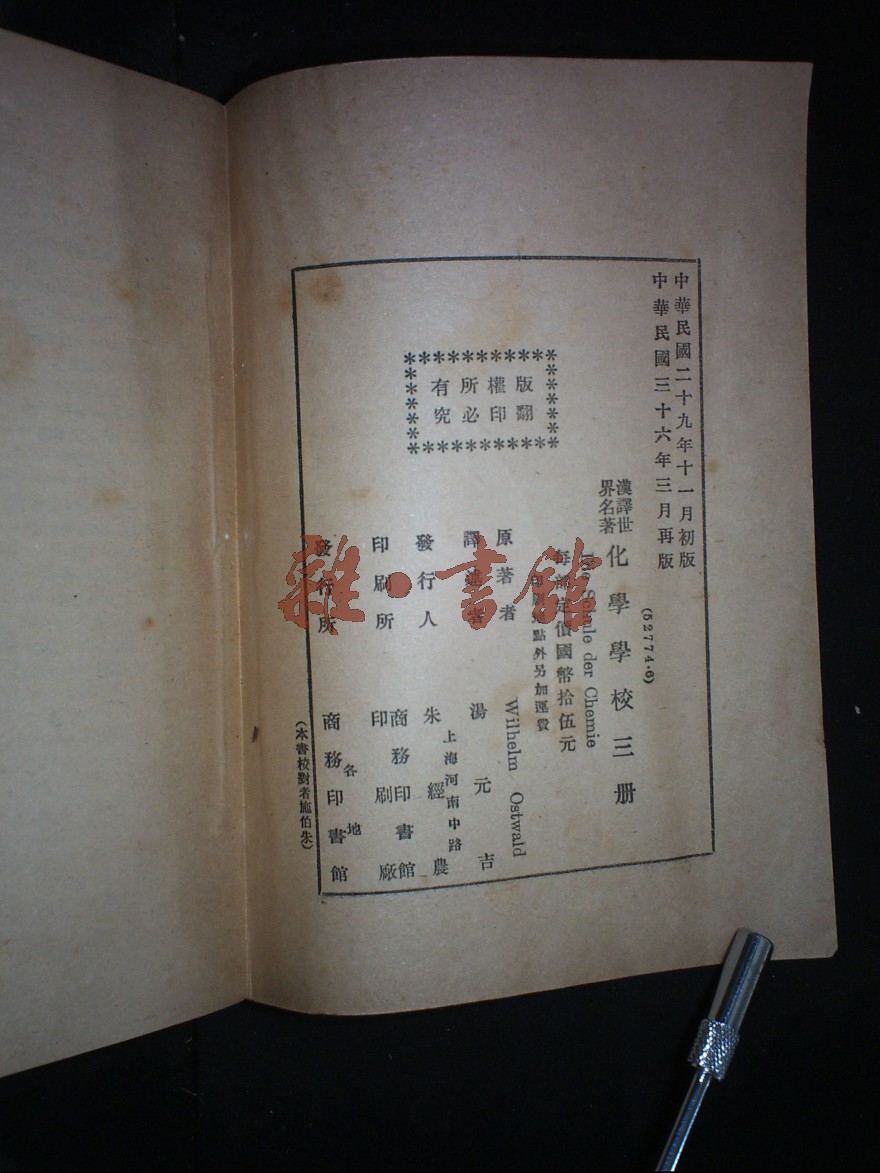 中華民國二十九年十一月初版
中華民國三十六年三月再版
(52774·6)
漢譯世界名著 化學學校三册
Die Schule der Chemie
每部定價國幣拾伍元
印刷地點外另加運費
版權所有
翻印必究
原著者 Wilhelm Ostwald
譯述者 湯元吉
發行人 朱經農
上海河南中路
印刷所 商務印書館印刷廠
發行所 商務印書館
各地
(本書校對者施伯朱)
雜·書館